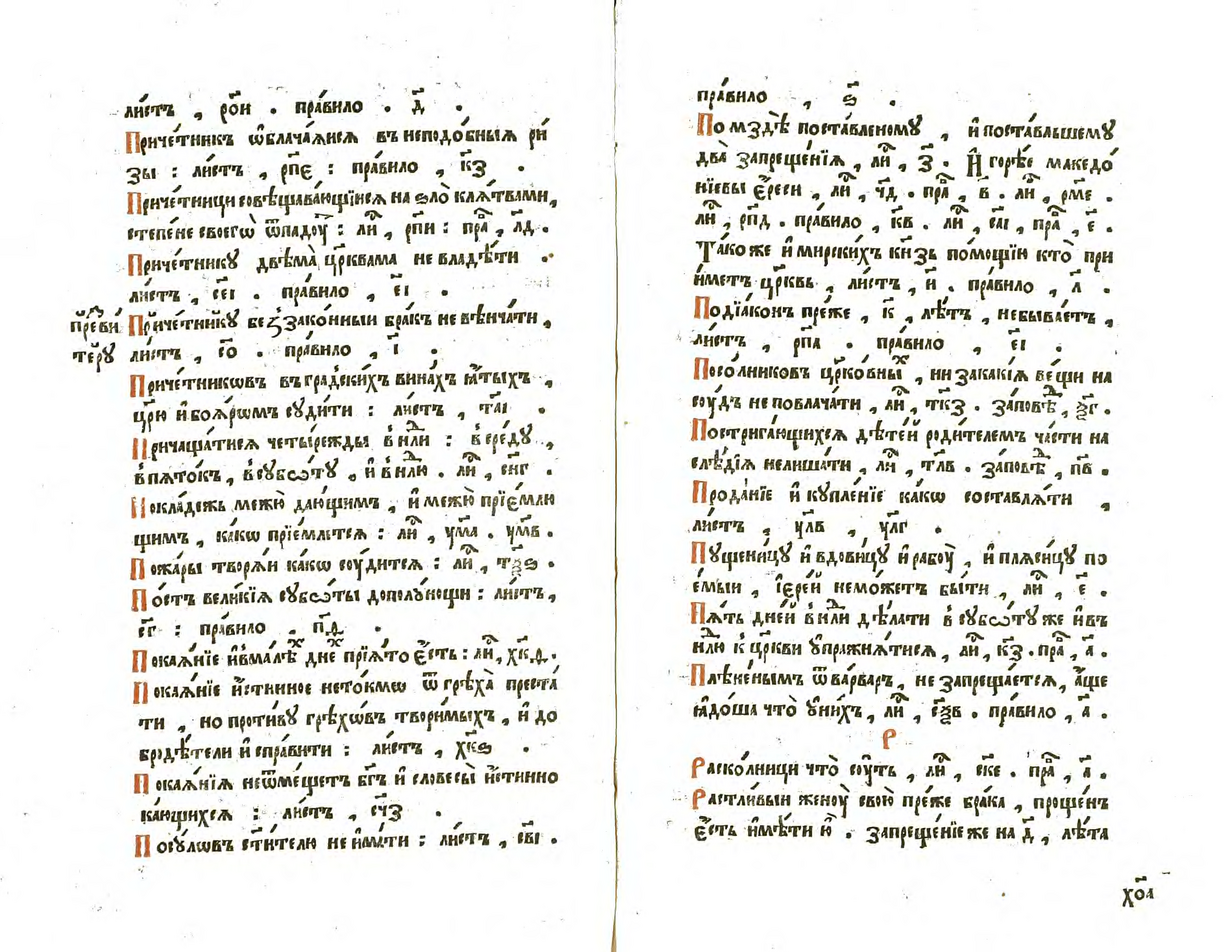 ли́стъ , ро҃и . пра́вило . д҃ .
Приче́тникъ ѡ҆блача́ѧисѧ въ неподо́бныѧ ри́
зы : ли́стъ , рп҃є : пра́вило , к҃з .
Приче́тници совѣщава́ющїисѧ на ѕло̀ клѧ́твами,
степе́не своегѡ̀ ѿпадоу́тъ : лиⷭ҇ , рп҃и : праⷡ҇ , л҃д .
Приче́тнику двѣма̀ цр҃квама не владѣ́ти .
ли́стъ , с҃єі . пра́вило , є҃і .
пре́ѕви
Приче́тнику беззако́нныи бра́къ не вѣнча́ти ,
те́ру
ли́стъ , с҃о . пра́вило , і҃ .
Приче́тникѡвъ въ гра́дскихъ вина́хъ ꙗ҆́тыхъ ,
цр҃ю и҆ боѧ́рѡмъ суди́ти : ли́стъ , та҃і .
Причаща́тисѧ четы́режды в нⷣли : в сре́ду ,
в пѧто́къ , в субѡ́ту , и҆ в нⷣлю . лиⷭ҇ , сн҃г .
Покла́дежь межю̀ даю́щимъ , и҆ межю̀ прїе́млю
щимъ , ка́кѡ прїе́млетсѧ : лиⷭ҇ , ум҃а . ум҃в .
Пожа́ры творѧ́и ка́кѡ соу́дитсѧ : лиⷭ҇ , тѯ҃ѕ .
По́стъ вели́кїѧ субѡ́ты до полу́нощи : ли́стъ ,
с҃г : пра́вило , п҃д .
Покаѧ́нїе и҆ в ма́лѣхъ дне́хъ прїѧ́то є҆́сть : лиⷭ҇ , хк҃д .
Покаѧ́нїе и҆́стинное не то́кмѡ ѿ грѣха̀ преста́
ти , но проти́ву грѣхо́въ твори́мыхъ , и҆ до
бродѣ́тели и҆спра́вити : ли́стъ , хк҃ѕ .
Покаѧ́нїѧ не ѿме́щетъ бг҃ъ и҆ словесы̀ и҆́стинно
ка́ющихсѧ : ли́стъ , сч҃з .
Посу́лѡвъ ст҃и́телю не и҆ма́ти : ли́стъ , св҃і .
пра́вило , ѕ҃ .
По мздѣ̀ поста́вленому , и҆ поста́вльшему
два̀ запреще́нїѧ , лиⷭ҇ , з҃ . И҆ го́рѣе македо́
нїевы є҆́реси , лиⷭ҇ , ч҃д . праⷡ҇ , в҃ . лиⷭ҇ , рм҃е .
лиⷭ҇ , рп҃д . пра́вило , к҃в . лиⷭ҇ , са҃і , праⷡ҇ , є҃ .
Та́коже и҆ мирски́хъ кнѧ҃зь по́мощїю кто̀ прі
и́метъ цр҃ковь , ли́стъ , и҃ . пра́вило , л҃ .
Подїа́конъ пре́же , к҃ , лѣ́тъ , не быва́етъ ,
ли́стъ , рп҃а . пра́вило , є҃і .
Посо́лниковъ цр҃ко́вныхъ , ни за ка́кїѧ ве́щи на
соу́дъ не повлача́ти , лиⷭ҇ , тк҃з . за́повѣдь , ѯ҃г .
Постриза́ющихсѧ дѣте́й роди́телемъ ча́сти на
слѣ́дїѧ не лиша́ти , лиⷭ҇ , тл҃в . за́повѣдь , п҃в .
Прода́нїе и҆ купле́нїе ка́кѡ составлѧ́ти ,
ли́стъ , ул҃в , ул҃г .
Пущени́цу и҆ вдови́цу и҆ рабоу̀ , и҆ плѧси́цу по
е́мыи , і҆єре́й не мо́жетъ бы́ти , лиⷭ҇ , є҃ .
Пѧ́ть дне́й в нⷣли дѣ́лати в субѡ́ту же и҆ въ
нⷣлю к цр҃кви у҆пражнѧ́тисѧ , лиⷭ҇ , к҃з . праⷡ҇ , а҃ .
Плѣне́нымъ ѿ ва́рваръ , не запреща́етсѧ , а҆́ще
ꙗ҆до́ша что̀ у҆ ни́хъ , лиⷭ҇ , сѯ҃в . пра́вило , а҃ .
Р
Раско́лници что̀ соу́ть , лиⷭ҇ , ск҃е . праⷡ҇ , а҃ .
Растли́выи женоу̀ свою̀ пре́же бра́ка , проще́нъ
є҆́сть и҆мѣ́ти ю҆̀ . запреще́нїе же на д҃ , лѣ́та
хо҃а